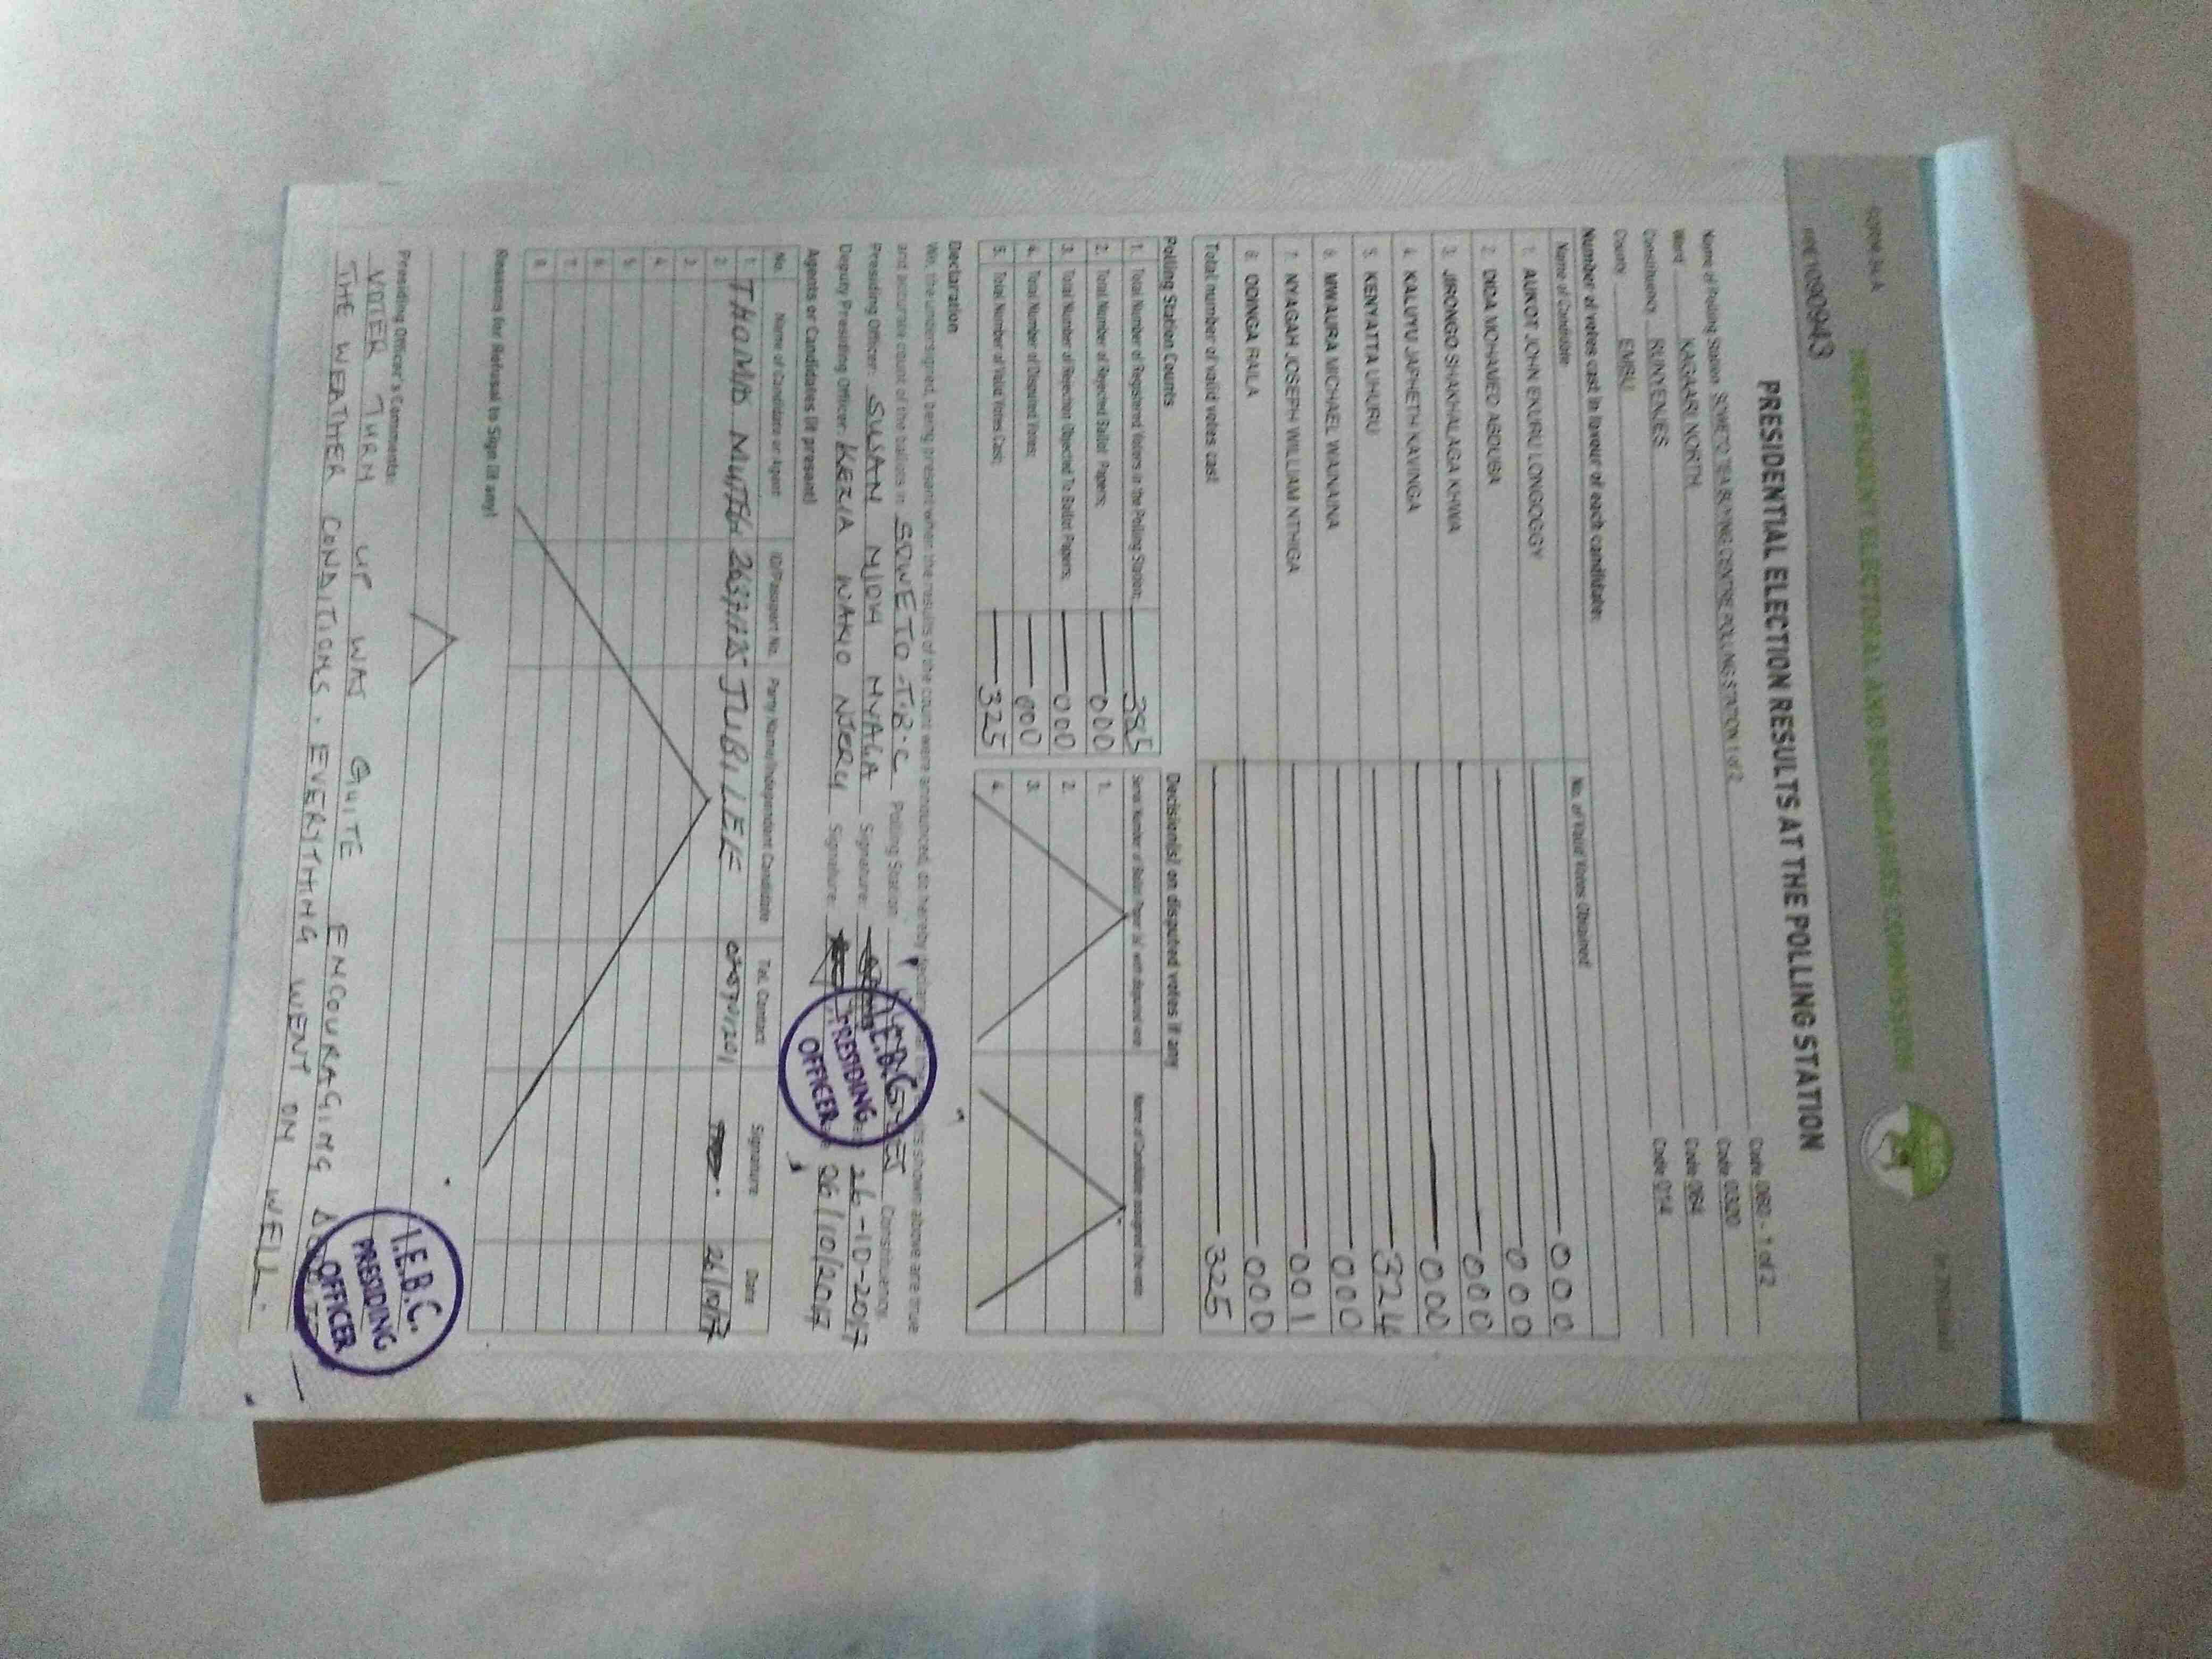 FORM 34 A
INDEPENDENT ELECTORAL AND BOUNDARIES COMMISSION
090943
PRESIDENTIAL ELECTION RESULTS AT THE POLLING STATION
Name of Polling Station SOWETO TEA BUYING CENTRE POLLING STATION 1 of 2 Code 080 - 1 of 2
Ward KAGAARI NORTH Code 0320
Constituency RUNYENJES Code 064
County EMBU Code 014
Number of votes cast in favour of each candidate:
Name of Candidate No. of Valid Votes Obtained
1. AUKOT JOHN EKURU LONGOGGY 000
2. DIDA MOHAMED ABDUBA 000
3. JIRONGO SHAKHALAGA KHWA 000
4. KALUYU JAPHETH KAVINGA 000
5. KENYATTA UHURU 324
6. MWAURA MICHAEL WAINAINA 000
7. NYAGAH JOSEPH WILLIAM NTHIGA 001
8. ODINGA RAILA 000
Total number of valid votes cast 325
Polling Station Counts
1. Total Number of Registered Voters in the Polling Station: 385
2. Total Number of Rejected Ballot Papers: 000
3. Total Number of Rejection Objected To Ballot Papers: 000
4. Total Number of Disputed Votes: 000
5. Total Number of Valid Votes Cast: 325
Decision(s) on disputed votes if any
Serial Number of Ballot Paper (s) with disputed vote Name of Candidate assigned the vote
1.
2.
3.
4.
Declaration
We, the undersigned, being present when the results of the count were announced, do hereby shown above are true
and accurate count of the ballots in SOWETO T.B.C Polling Station Constituency.
Presiding Officer: SUSAN NJOKI NYAGA Signature: 26-10-2017
Deputy Presiding Officer: KEZIA WANJO NJERU Signature: 06/10/2017
I.E.B.C.
PRESIDING
OFFICER
Agents or Candidates (if present)
No. Name of Candidate or Agent ID/Passport No. Party Name/Independent Candidate Tel. Contact Signature Date
1. THOMAS JUBILEE 26/10/17
2.
3.
4.
5.
6.
7.
8.
Reasons for Refusal to Sign (if any)
Presiding Officer's Comments:
VOTER TURN UP WAS QUITE ENCOURAGING
THE WEATHER CONDITIONS. EVERYTHING WENT ON WELL.
I.E.B.C.
PRESIDING
OFFICER